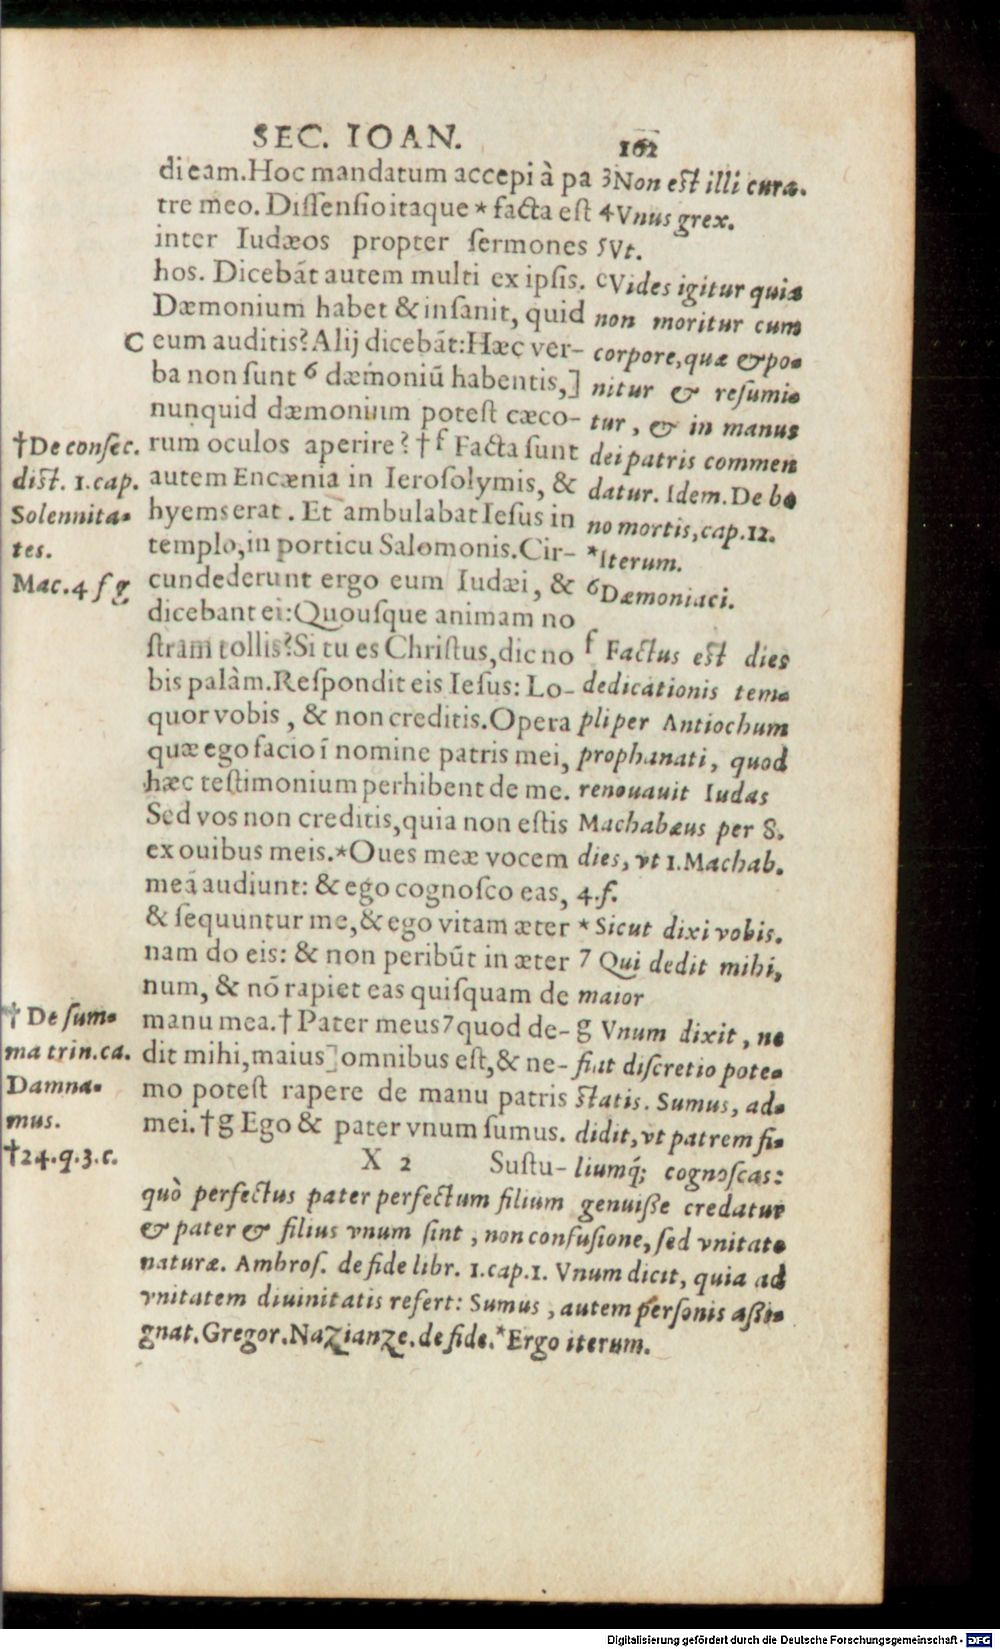 SEC. IOAN. 162
di eam. Hoc mandatum accepi à pa
tre meo. Dissensio itaque * facta est
inter Iudæos propter sermones
hos. Dicebãt autem multi ex ipsis.
Dæmonium habet & insanit, quid
C eum auditis? Alij dicebãt: Hæc ver-
ba non sunt 6 dæmoniũ habentis,]
nunquid dæmonium potest cæco-
rum oculos aperire? † f Facta sunt
autem Encænia in Ierosolymis, &
hyems erat. Et ambulabat Iesus in
templo, in porticu Salomonis. Cir-
cundederunt ergo eum Iudæi, &
dicebant ei: Quousque animam no
stram tollis? Si tu es Christus, dic no
bis palàm. Respondit eis Iesus: Lo-
quor vobis, & non creditis. Opera
quæ ego facio ĩ nomine patris mei,
hæc testimonium perhibent de me.
Sed vos non creditis, quia non estis
ex ouibus meis. * Oues meæ vocem
meã audiunt: & ego cognosco eas,
& sequuntur me, & ego vitam æter
nam do eis: & non peribũt in æter
num, & nõ rapiet eas quisquam de
manu mea. † Pater meus 7 quod de-
dit mihi, maius] omnibus est, & ne-
mo potest rapere de manu patris
mei. † g Ego & pater vnum sumus.
X 2 Sustu-
† De consec.
dist. 1. cap.
Solennita-
tes.
Mac. 4 f g
† De sum-
ma trin. ca.
Damna-
mus.
† 24. q. 3. c.
3 Non est illi curæ.
4 Vnus grex.
5 Vt.
c Vides igitur quia
non moritur cum
corpore, quæ & po-
nitur & resumi-
tur, & in manus
dei patris commen
datur. Idem. De bo
no mortis, cap. 12.
* Iterum.
6 Dæmoniaci.
f Factus est dies
dedicationis tem-
pli per Antiochum
prophanati, quod
renouauit Iudas
Machabæus per 8.
dies, vt 1. Machab.
4. f.
* Sicut dixi vobis.
7 Qui dedit mihi,
maior
g Vnum dixit, ne
fiat discretio pote-
statis. Sumus, ad-
didit, vt patrem fi-
liumq; cognoscas:
quò perfectus pater perfectum filium genuisse credatur
& pater & filius vnum sint, non confusione, sed vnitate
naturæ. Ambros. de fide libr. 1. cap. 1. Vnum dicit, quia ad
vnitatem diuinitatis refert: Sumus, autem personis assi-
gnat. Gregor. Nazianze. de fide. * Ergo iterum.
Digitalisierung gefördert durch die Deutsche Forschungsgemeinschaft - DFG